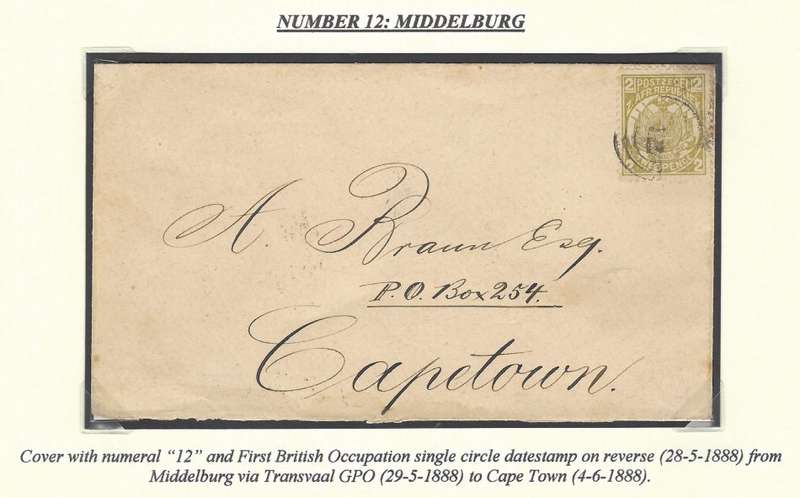 NUMBER 12: MIDDELBURG
2 POSTZEGEL 2
AFR. REPUBLIEK
2
A. Braun Esq.
P.O. Box 254.
Capetown.
Cover with numeral “12” and First British Occupation single circle datestamp on reverse (28-5-1888) from
Middelburg via Transvaal GPO (29-5-1888) to Cape Town (4-6-1888).